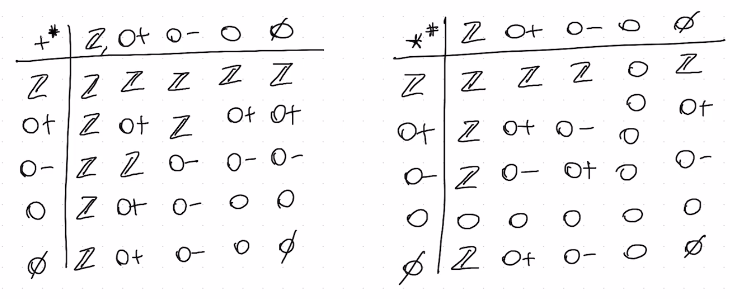 +# | ℤ, 0+ 0- 0 ∅
ℤ | ℤ ℤ ℤ ℤ ℤ
0+ | ℤ 0+ ℤ 0+ 0+
0- | ℤ ℤ 0- 0- 0-
0 | ℤ 0+ 0- 0 0
∅ | ℤ 0+ 0- 0 ∅
*# | ℤ 0+ 0- 0 ∅
ℤ | ℤ ℤ ℤ 0 ℤ
0
0+ | ℤ 0+ 0- 0 0+
0- | ℤ 0- 0+ 0 0-
0 | 0 0 0 0 0
∅ | ℤ 0+ 0- 0 ∅